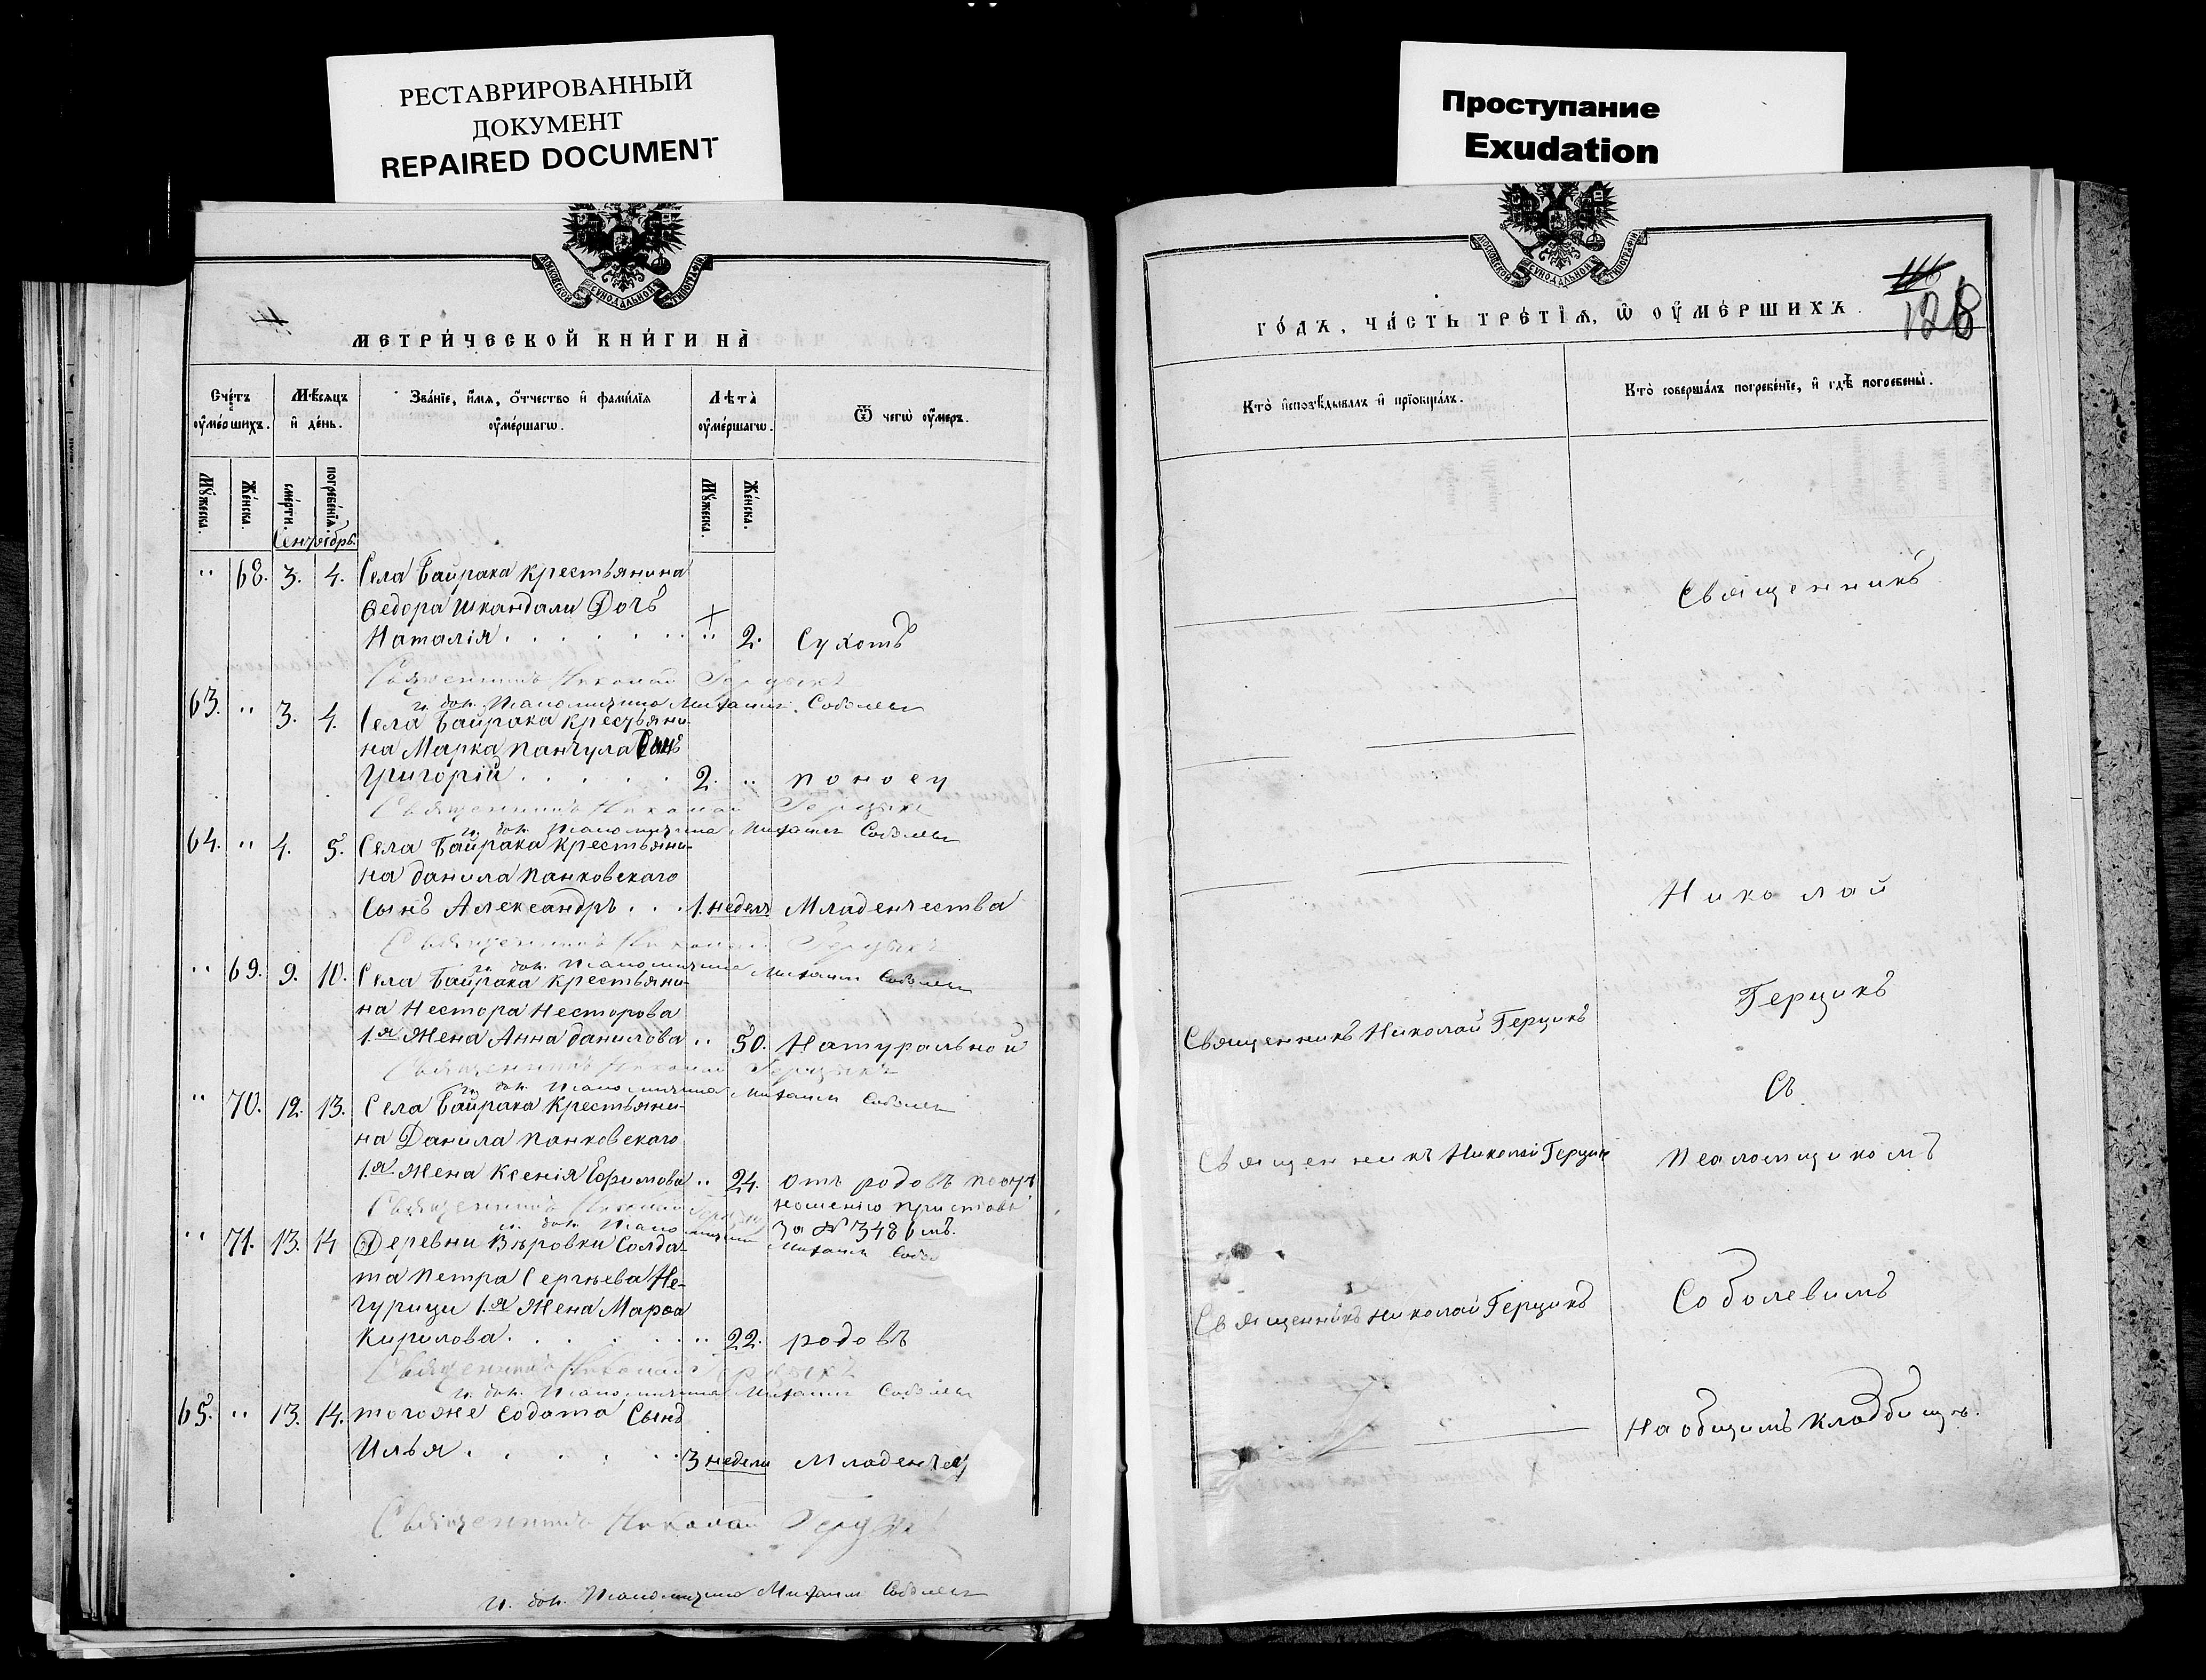 РЕСТАВРИРОВАННЫЙ
ДОКУМЕНТ
REPAIRED DOCUMENT
Проступание
Exudation
МОСКОВСКОЙ СѴНОДАЛЬНОЙ ТИПОГРАФІИ
МЕТРИ́ЧЕСКОЙ КНИ́ГИ НА̀
Сче́тъ ѹ҆ме́ршихъ.
Мѣ́сяцъ и҆ де́нь.
Зва́нїе, и҆́мя, ѻ҆́тчество и҆ фами́лїя ѹ҆ме́ршагѡ.
Лѣ́та ѹ҆ме́ршагѡ.
Ѿ чегѡ̀ ѹ҆́меръ.
Мꙋ́жеска.
Же́нска.
сме́рти.
погребе́нїѧ.
Мꙋ́жеска.
Же́нска.
Сентябрь.
" 68. 3. 4. Села Байрака крестьянина
Ѳедора Шкандали Дочь
Наталія . . . . . . . " 2. Сухоть
Священникъ Николай Герцикъ
и. дол. Псаломщика Михаилъ Соболев
63. " 3. 4. Села Байрака крестьяни-
на Марка Панчула Сынъ
Григорій . . . . . 2. " поносу
Священникъ Николай Герцикъ
и. дол. Псаломщика Михаилъ Соболев
64. " 4. 5. Села Байрака крестьяни-
на данила Панковскаго
Сынъ Александръ . . . 1. недель Младенчества
Священникъ Николай Герцикъ
и. дол. Псаломщика Михаилъ Соболев
" 69. 9. 10. Села Байрака крестьяни-
на Нестора Несторова
1.я Жена Анна данилова " 50. Натуральной
Священникъ Николай Герцикъ
и. дол. Псаломщика Михаилъ Соболев
" 70. 12. 13. Села Байрака крестьяни-
на Данила Панковскаго
1.я Жена Ксенія Ефимова " 24. отъ родовъ по от
ношенію пристава
Священникъ Николай Герцикъ
за № 3486 мъ.
и. дол. Псаломщика Михаилъ Собо
" 71. 13. 14 Деревни Вѣровки Солда-
та Петра Сергѣева Не-
чурици 1.я Жена Марѳа
Кирилова . . . . . . " 22. родовъ
Священникъ Николай Герцикъ
и. дол. Псаломщика Михаилъ Соболев
65. " 13. 14. тогоже Содата Сынъ
Илья . . . . . . 3 недели Младенчес
Священникъ Николай Герцикъ
и. дол. Псаломщика Михаилъ Соболев
МОСКОВСКОЙ СѴНОДАЛЬНОЙ ТИПОГРАФІИ
ГО́ДЪ, ЧА́СТЬ ТРЕ́ТІѦ, Ѡ҆ ОУ҆МЕ́РШИХЪ
128
Кто̀ и҆сповѣ́дывалъ и҆ прїѡбща́лъ.
Кто̀ соверша́лъ погребе́нїе, и҆ гдѣ̀ погребены̀.
Священникъ
Николай
Герцикъ
Священникъ Николай Герцикъ
Съ
Священникъ Николай Герцик
Псаломщикомъ
Соболевимъ
Священникъ Николай Герцикъ
На общимъ кладбищѣ.